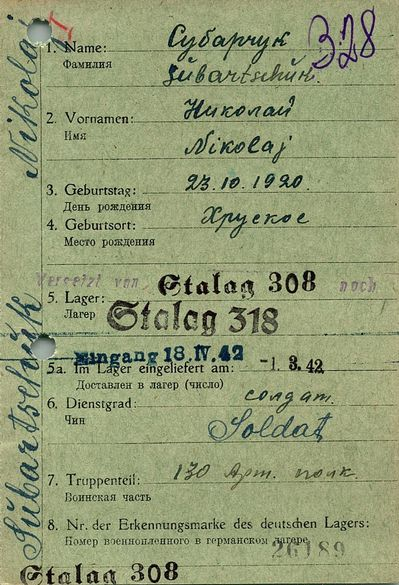 328
1. Name: Субарчук
Фамилия Sŭbartschŭk
2. Vornamen: Николай
Имя Nikolaj
3. Geburtstag: 23.10.1920.
День рождения
4. Geburtsort: Хруское
Место рождения
Versetzt von Stalag 308 nach
5. Lager: Stalag 318
Лагер
Eingang 18. IV. 42
5a. Im Lager eingeliefert am: -1. 3. 42
Доставлен в лагер (число)
6. Dienstgrad: солдат.
Чин Soldat
7. Truppenteil: 130 Арт. полк.
Воинская часть
8. Nr. der Erkennungsmarke des deutschen Lagers:
Номер военнопленного в германском лагере
26189
Stalag 308
Sŭbartschŭk Nikolaj